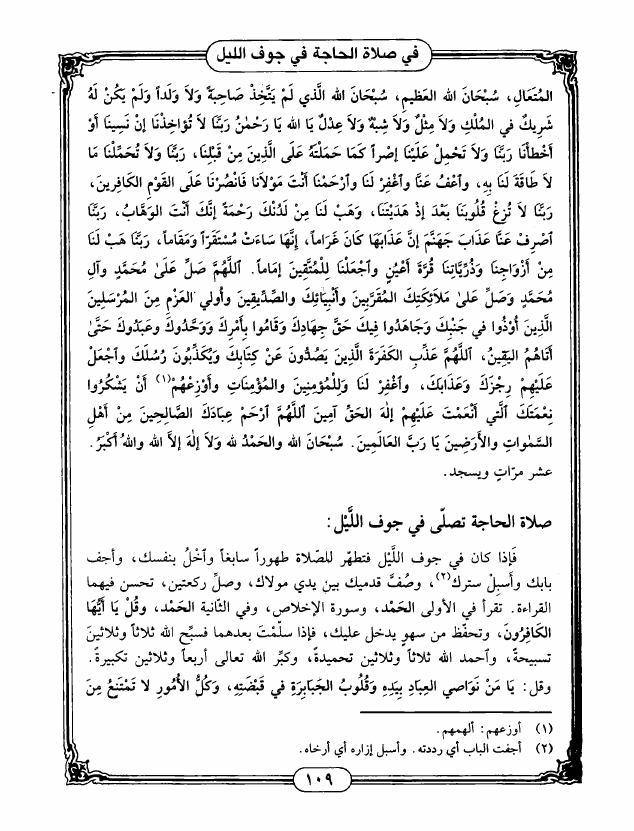 في صلاة الحاجة في جوف الليل
المُتَعَالِ، سُبْحَانَ الله العَظِيمِ، سُبْحَانَ الله الَّذي لَمْ يَتَّخِذْ صَاحِبَةً وَلاَ وَلَداً وَلَمْ يَكُنْ لَهُ
شَرِيكٌ في المُلْكِ وَلاَ مِثْلٌ وَلاَ شِبْهٌ وَلاَ عِدْلٌ يَا الله يَا رَحْمٰنُ رَبَّنَا لاَ تُؤَاخِذْنَا إنْ نَسِينَا أَوْ
أَخْطَأْنَا رَبَّنَا وَلاَ تَحْمِلْ عَلَيْنَا إصْراً كَمَا حَمَلْتَهُ عَلَى الَّذِينَ مِنْ قَبْلِنَا، رَبَّنَا وَلاَ تُحَمِّلْنَا مَا
لاَ طَاقَةَ لَنَا بِهِ، وٱعْفُ عَنَّا وٱغْفِرْ لَنَا وٱرْحَمْنَا أَنْتَ مَوْلاَنَا فَٱنْصُرْنَا عَلَى القَوْمِ الكَافِرِينَ،
رَبَّنَا لاَ تُزِغْ قُلُوبَنَا بَعْدَ إذْ هَدَيْتَنَا، وَهَبْ لَنَا مِنْ لَدُنْكَ رَحْمَةً إنَّكَ أَنْتَ الوَهَّابُ، رَبَّنَا
ٱصْرِفْ عَنَّا عَذَابَ جَهَنَّمَ إنَّ عَذَابَهَا كَانَ غَرَاماً، إنَّهَا سَاءَتْ مُسْتَقَرّاً وَمَقَاماً، رَبَّنَا هَبْ لَنَا
مِنْ أَزْوَاجِنَا وَذُرِّيَّاتِنَا قُرَّةَ أَعْيُنٍ وٱجْعَلْنَا لِلْمُتَّقِينَ إمَاماً. اَللَّهُمَّ صَلِّ عَلَىٰ مُحَمَّدٍ وآلِ
مُحَمَّدٍ وَصَلِّ عَلىٰ مَلاَئِكَتِكَ المُقَرَّبِينَ وأَنْبِيَائِكَ والصِّدِّيقِينَ وأُولي العَزْمِ مِنَ المُرْسَلِينَ
الَّذِينَ أُوْذُوا في جَنْبِكَ وَجَاهَدُوا فِيكَ حَقَّ جِهَادِكَ وَقَامُوا بِأَمْرِكَ وَوَحَّدُوكَ وعَبَدُوكَ حَتَّىٰ
أَتَاهُمُ اليَقِينُ، اَللَّهُمَّ عَذِّبِ الكَفَرَةَ الَّذِينَ يَصُدُّونَ عَنْ كِتَابِكَ وَيُكَذِّبُونَ رُسُلَكَ وٱجْعَلْ
عَلَيْهِمْ رِجْزَكَ وَعَذَابَكَ، وٱغْفِرْ لَنَا وَلِلْمُؤمِنِينَ والمُؤْمِنَاتِ وأَوْزِعْهُمْ(١) أَنْ يَشْكُرُوا
نِعْمَتَكَ الَّتي أَنْعَمْتَ عَلَيْهِمْ إلٰهَ الحَقِّ آمِينَ اَللَّهُمَّ ٱرْحَمْ عِبَادَكَ الصَّالِحِينَ مِنْ أَهْلِ
السَّمٰواتِ والأَرَضِينَ يَا رَبَّ العَالَمِينَ. سُبْحَانَ الله والحَمْدُ لله وَلاَ إلٰهَ إلاَّ الله واللهُ أَكْبَرُ.
عشر مرّاتٍ ويسجد.
صلاة الحاجة تصلّى في جوف اللَّيْل:
فَإذا كان في جوف اللَّيْل فتطهّر للصَّلاة طهوراً سابغاً وٱخْلُ بنفسك، وأجف
بابك وأَسبِلْ سترك(٢)، وصُفَّ قدميك بين يدي مولاك، وصلِّ ركعتين، تحسن فيهما
القراءة. تقرأ في الأولى الحَمْد، وسورة الإخلاص، وفي الثَّانية الحَمْد، وقُلْ يَا أَيُّهَا
الكَافِرُونَ، وتحفّظ من سهوٍ يدخل عليك، فإذا سلّمْتَ بعدهما فسبِّح الله ثلاثاً وثلاثينَ
تسبيحةً، وٱحمد الله ثلاثاً وثلاثين تحميدةً، وكبِّر الله تعالى أربعاً وثلاثين تكبيرةً.
وقل: يَا مَنْ نَوَاصي العِبَادِ بِيَدِهِ وَقُلُوبُ الجَبَابِرَةِ في قَبْضَتِهِ، وَكُلُّ الأُمُورِ لاَ تَمْتَنِعُ مِنَ
(١) أوزعهم: ألهمهم.
(٢) أجفت الباب أي رددته. وأسبل إزاره أي أرخاه.
١٠٩